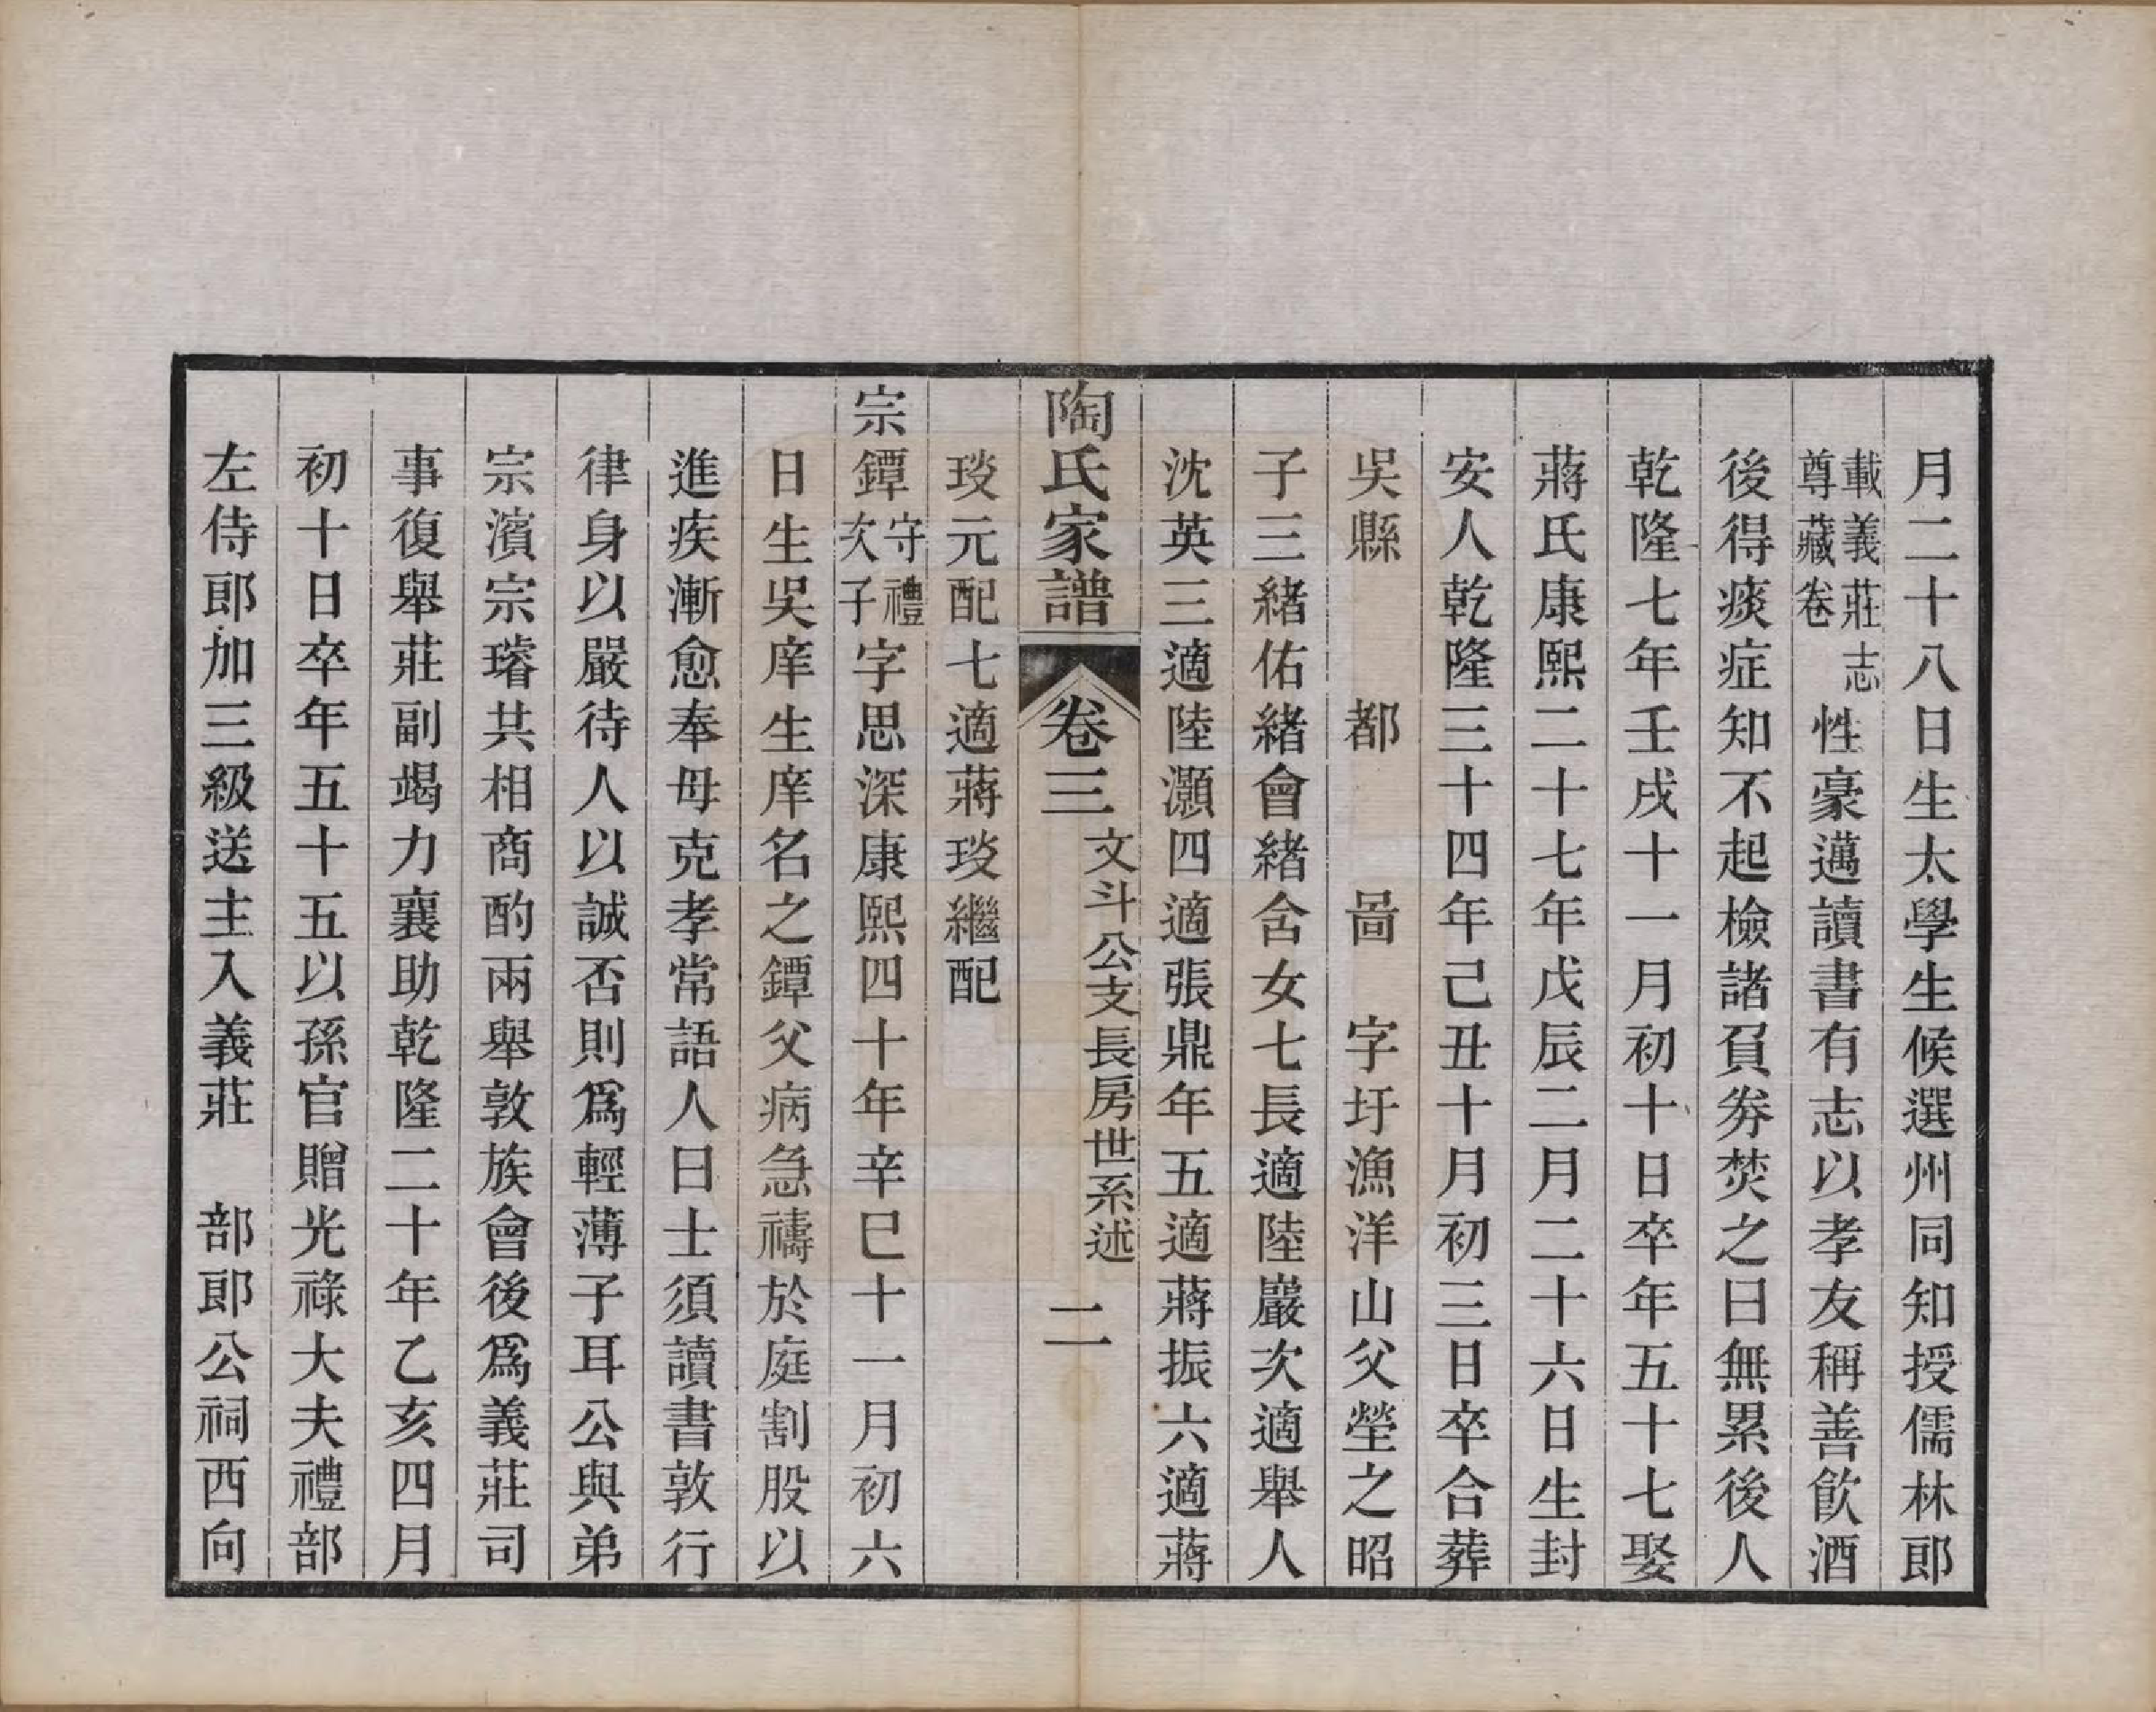 月二十八日生太學生候選州同知授儒林郎
載義莊志尊藏卷性豪邁讀書有志以孝友稱善飲酒
後得痰症知不起檢諸負劵焚之曰無累後人
乾隆七年壬戌十一月初十日卒年五十七娶
蔣氏康熙二十七年戊辰二月二十六日生封
安人乾隆三十四年己丑十月初三日卒合葬
吳縣　都　啚　字圩漁洋山父塋之昭
子三緒佑緒會緒含女七長適陸巖次適舉人
沈英三適陸灝四適張鼎年五適蔣振六適蔣
陶氏家譜　卷三　文斗公支長房世系述　二
琰元配七適蔣琰繼配
宗鐔守禮次子字思深康熙四十年辛巳十一月初六
日生吳庠生庠名之鐔父病急禱於庭割股以
進疾漸愈奉母克孝常語人曰士須讀書敦行
律身以嚴待人以誠否則爲輕薄子耳公與弟
宗濱宗璿共相商酌兩舉敦族會後爲義莊司
事復舉莊副竭力襄助乾隆二十年乙亥四月
初十日卒年五十五以孫官贈光祿大夫禮部
左侍郎加三級送主入義莊　部郎公祠西向